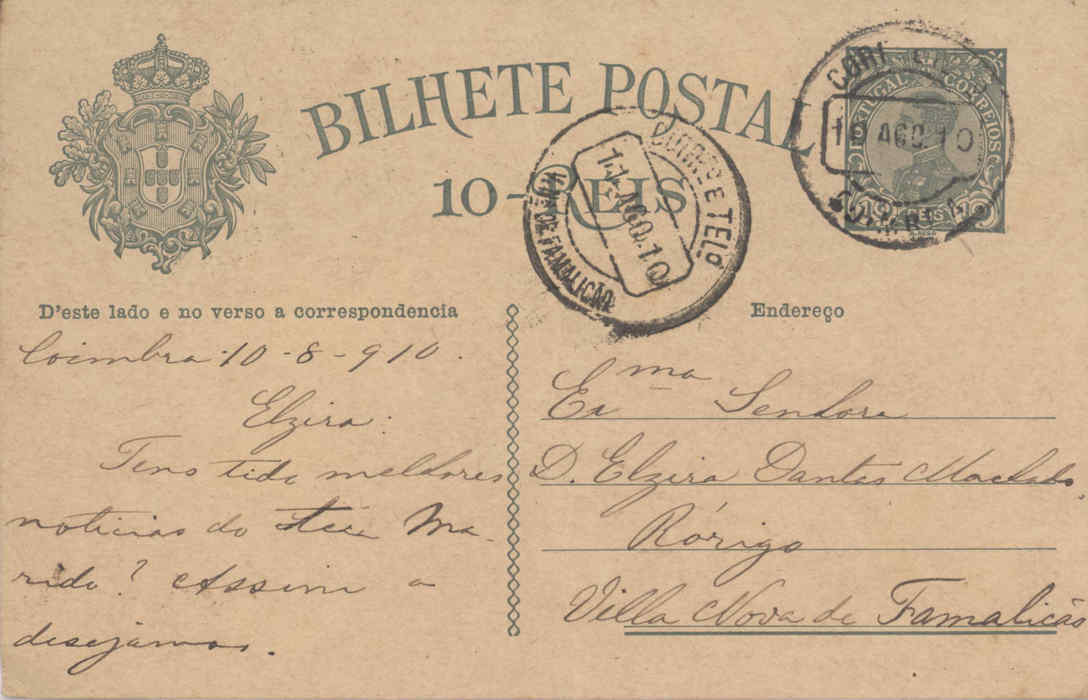 BILHETE POSTAL
10-REIS
PORTUGAL CORREIOS
10 AGO.10
COIMBRA
CORRº E TELº
11 AGO.10
Vª Nª DE FAMALICÃO
D'este lado e no verso a correspondencia
Endereço
Coimbra 10-8-910.
Elzira:
Tens tido melhores
noticias do teu Ma-
rido? Assim o
desejâmos.
Exma Senhora
D. Elzira Dantas Machado,
Rórigo
Villa Nova de Famalicão